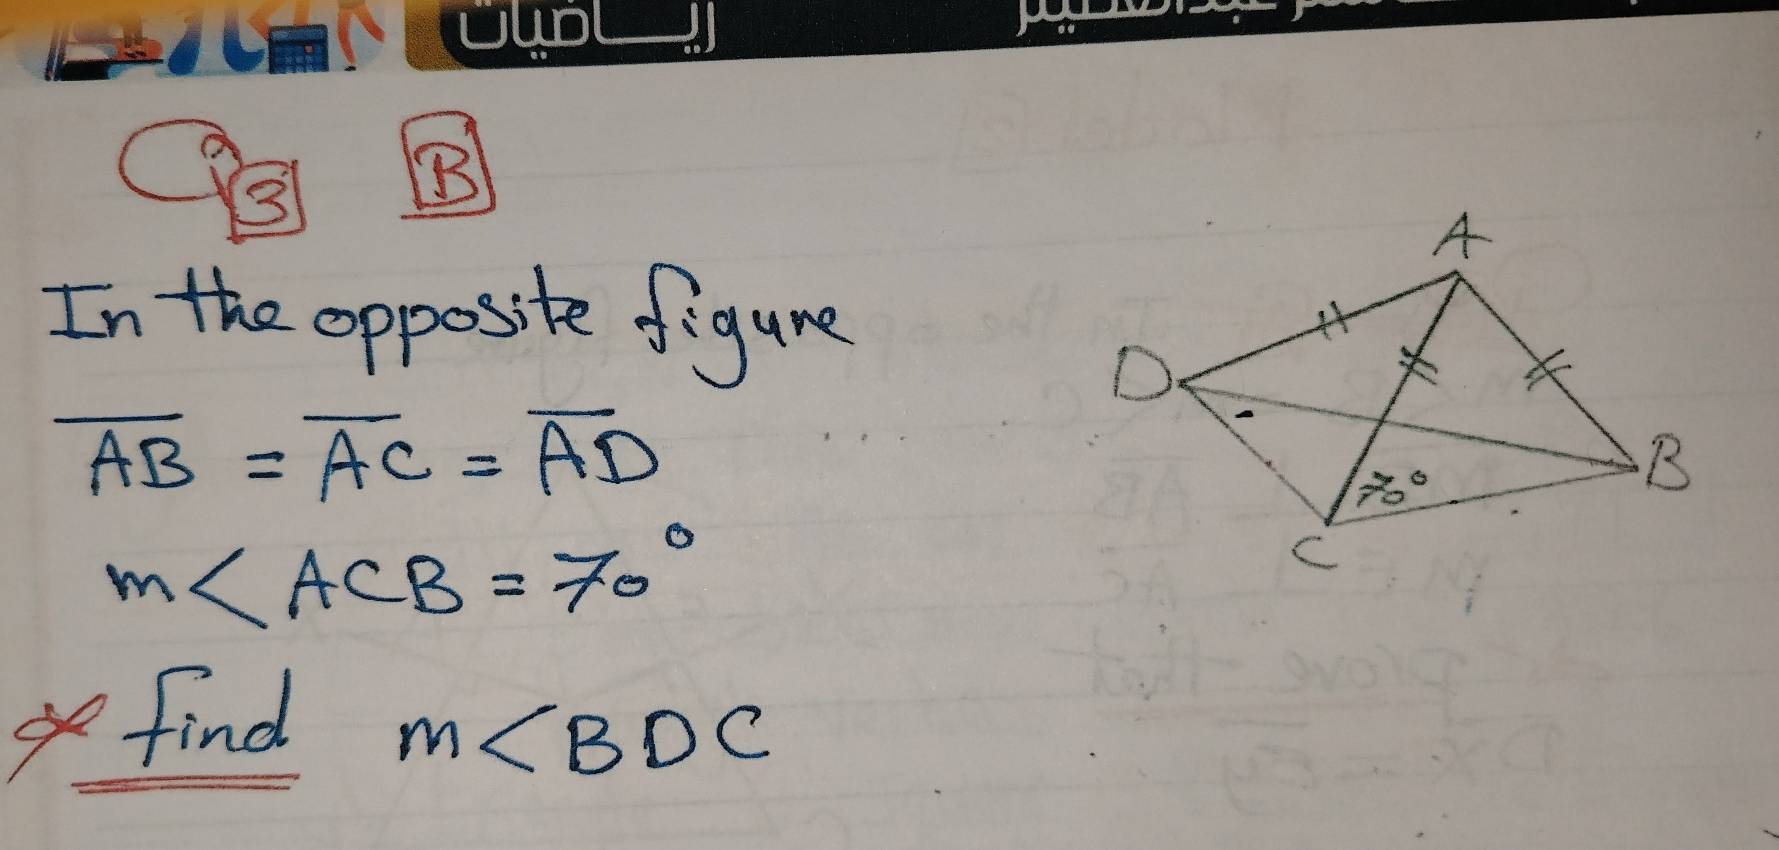 رياضيات
Q 3 B
In the opposite figure
AB = AC = AD
m< ACB = 70°
find m< BDC
A
D
B
70°
C